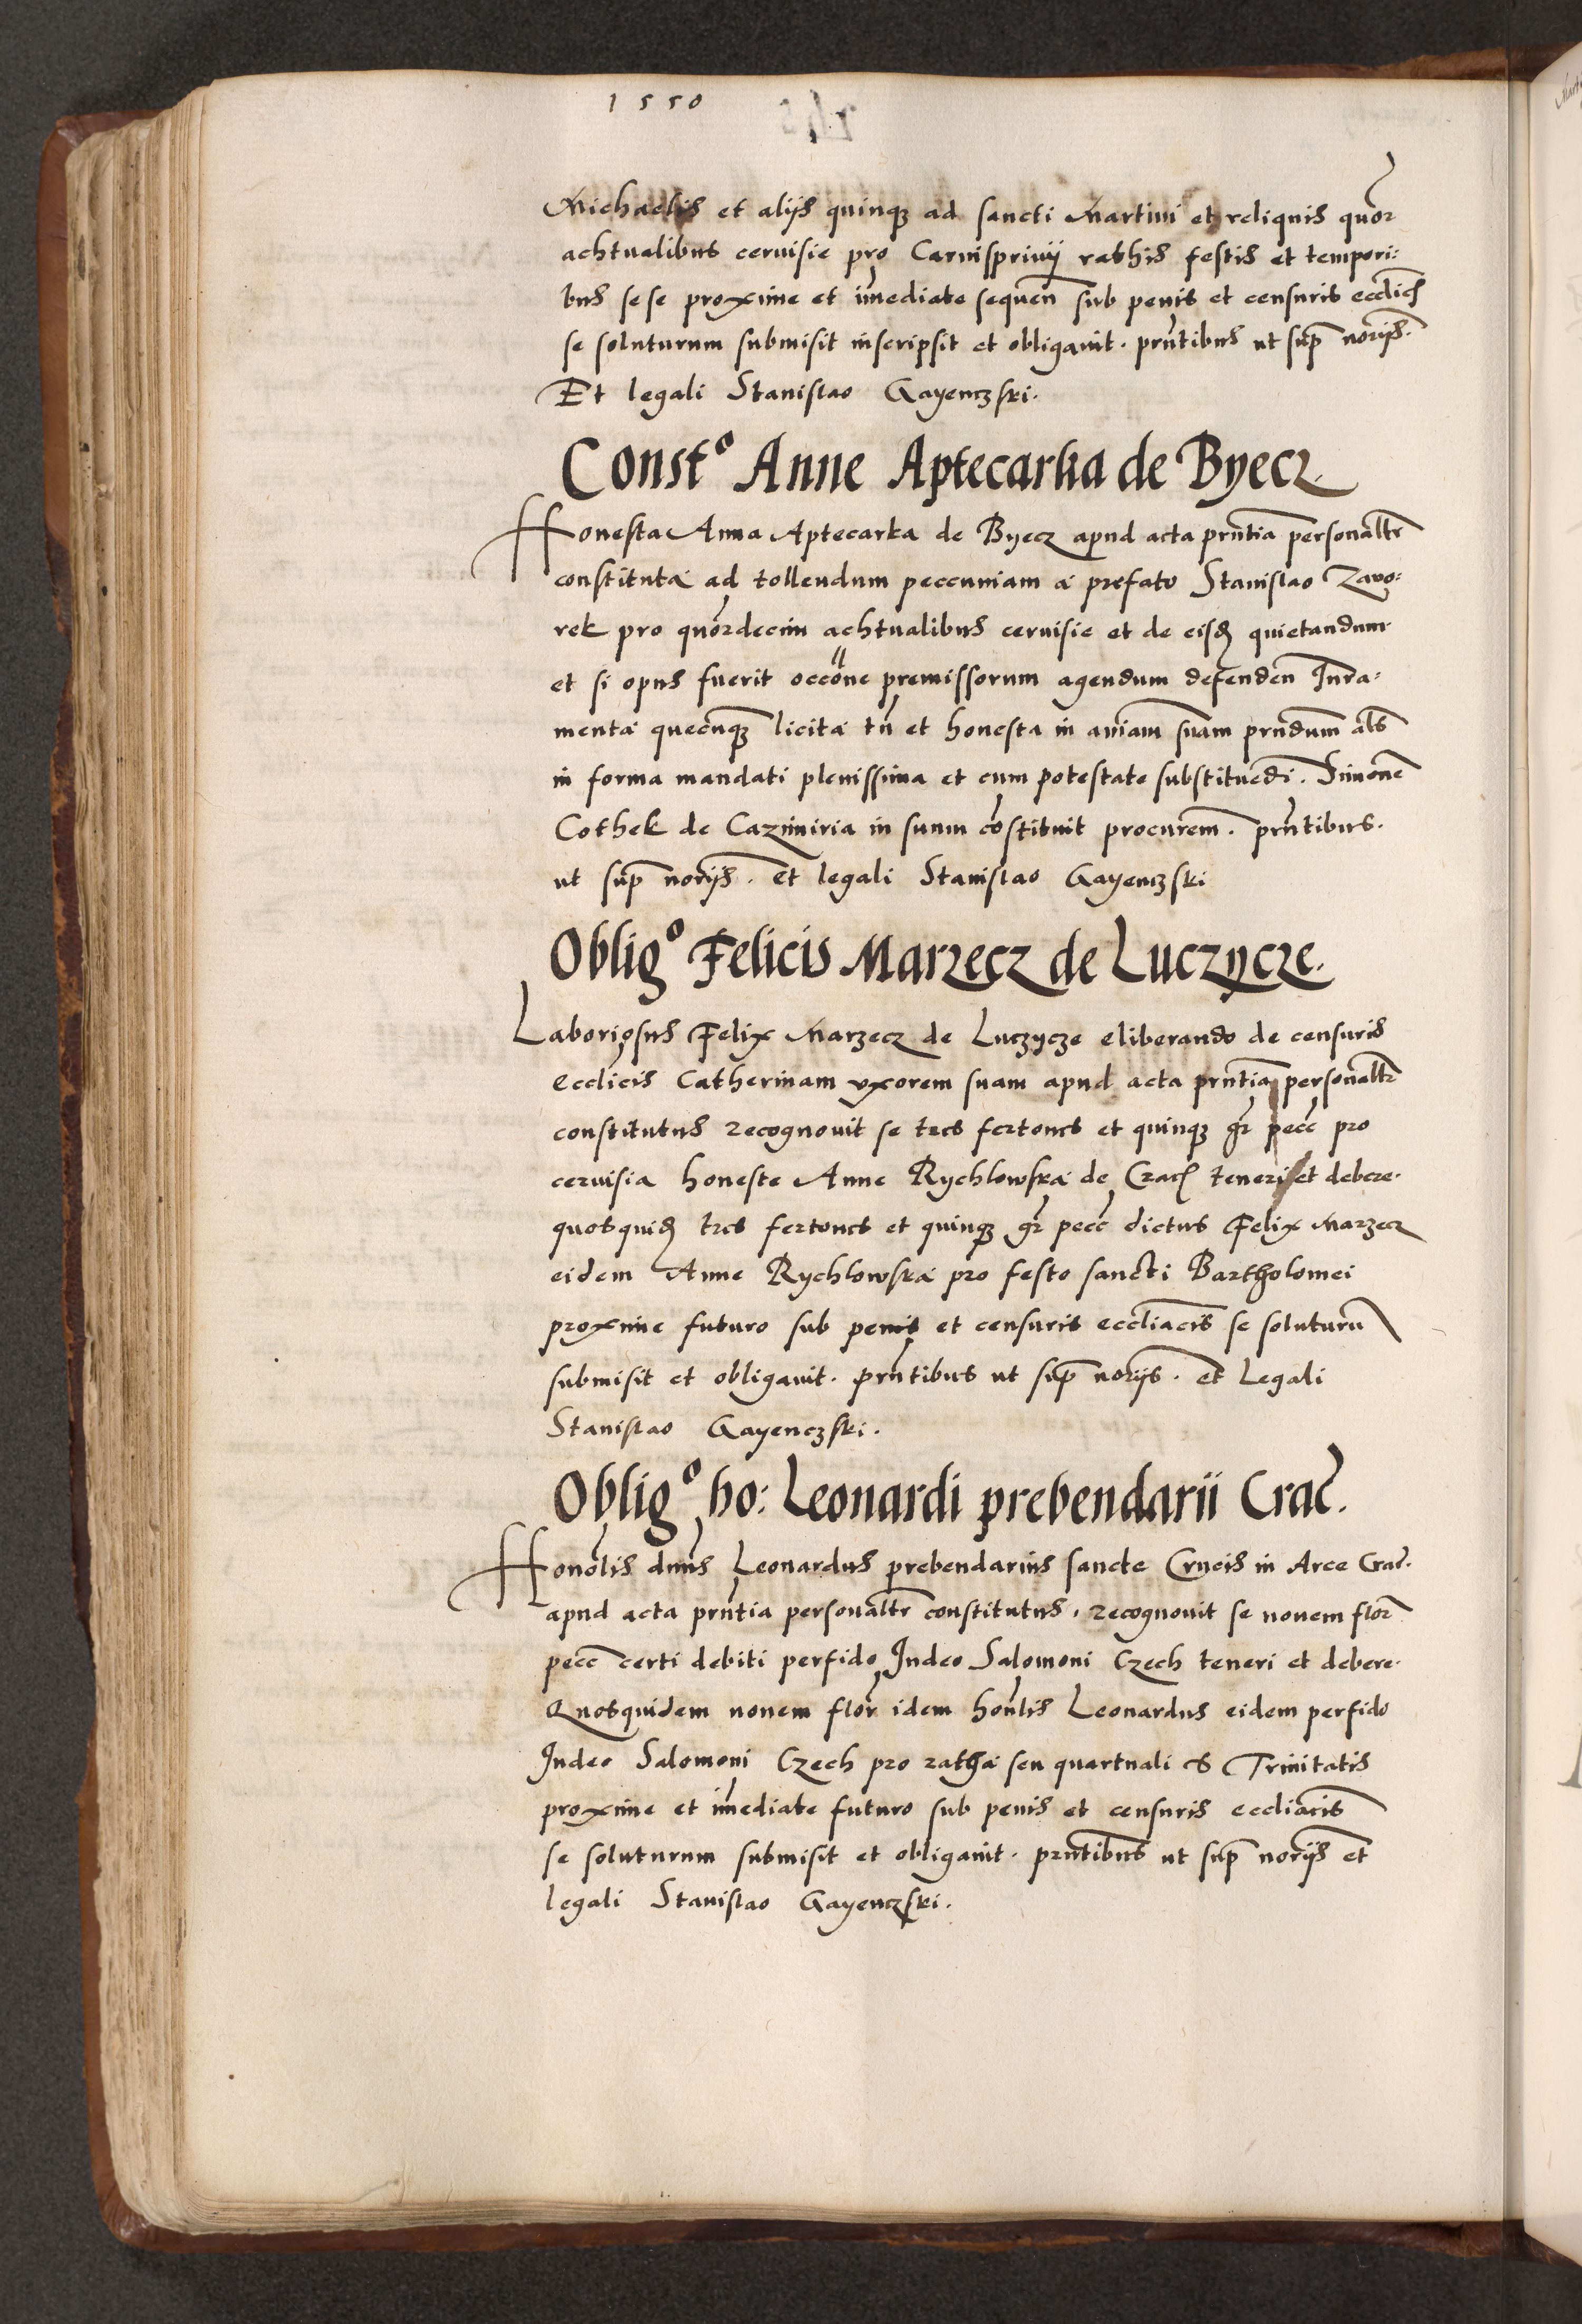 1550
Michaelis et alijs quinqꝫ ad sancti Martini et reliquis quor
achtualibus ceruisie pro Carnispriuij rathis festis et tempori:
bus sese proxime et imediate sequen̄ sub penis et censuris ecclicꝭ
se soluturum submisit inscripsit et obligauit. pn̄tibus ut sup̄ norijs.
Et legali Stanislao Gayenczski.
Const⁰ Anne Aptecarka de Byecz
Honesta Anna Aptecarka de Byecz apud acta pn̄tia personalr̄
constituta ad tollendum peccuniam a prefato Stanislao Zawo:
rek pro quordecim achtualibus ceruisie et de eisd̄ quietandum
et si opus fuerit occōne premissorum agendum defenden̄ Iura:
menta quecūqꝫ licita tn̄ et honesta in aniam suam prn̄dum als̄
in forma mandati plenissima et cum potestate substituēdi. Simonē
Cothek de Cazimiria in suum cōstituit procurem̄. prn̄tibus.
ut sup̄ norijs. et legali Stanislao Gayenczski
Oblig⁰ Felicis Marzecz de Luczycze.
Laboriosus Felix Marzecz de Luczycze eliberando de censuris
Ecclīcis Catherinam vxorem suam apud acta prn̄tia personalr̄
constitutus recognouit se tres fertones et quinqꝫ gr̄ pecc̄ pro
ceruisia honeste Anne Rychlowska de Cracꝭ teneri et debere.
quosquid̄ tres fertones et quinqꝫ gr̄ pecc̄ dictus Felix Marzecz
eidem Anne Rychlowska pro festo sancti Bartholomei
proxime futuro sub penis et censuris ecclīacis se soluturū
submisit et obligauit. prn̄tibus ut sup̄ norijs. et Legali
Stanislao Gayenczski.
Oblig⁰ ho: Leonardi prebendarii Crac̄.
Honōlis dnus Leonardus prebendarius sancte Crucis in Arce Crac̄.
apud acta prn̄tia personalr̄ constitutus, recognouit se nouem flor̄
pecc̄ certi debiti perfido Iudeo Salomoni Czech teneri et debere.
Quosquidem nouem flor̄ idem honlis Leonardus eidem perfido
Iudeo Salomoni Czech pro ratha seu quartuali S Trinitatis
proxime et imediate futuro sub penis et censuris ecclīacis
se soluturum submisit et obligauit. prn̄tibus ut sup̄ norijs et
legali Stanislao Gayenczski.